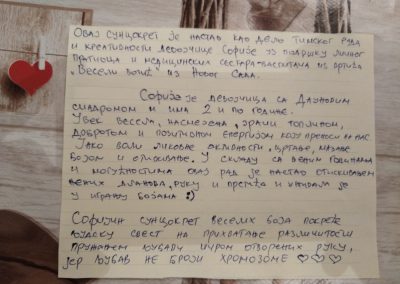 Овај сунцокрет је настао као дело тимског рада
и креативности девојчице Софије уз подршку личног
пратиоца и медицинских сестара васпитача из вртића
„Весели вртић" из Новог Сада.
Софија је девојчица са Дауновим
синдромом и има 2 и по године.
Увек весела, насмејана, зрачи топлином,
добротом и позитивном енергијом коју преноси на нас.
Јако воли ликовне активности, цртање, мазање
бојом и отискивање. У складу са њеним годинама
и могућностима овај рад је настао отискивањем
њених дланова, руку и прстића и уживала је
у игрању бојама :)
Софијин сунцокрет веселих боја покреће
људску свест на прихватање различитости
пружањем љубави широм отворених руку,
јер љубав не броји хромозоме ♡♡♡